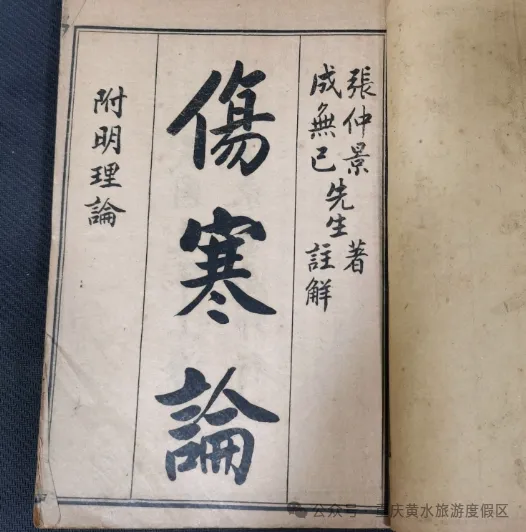 張仲景
成無已
先生
著
註解
傷寒論
附明理論
公众号·重庆黄水旅游度假区